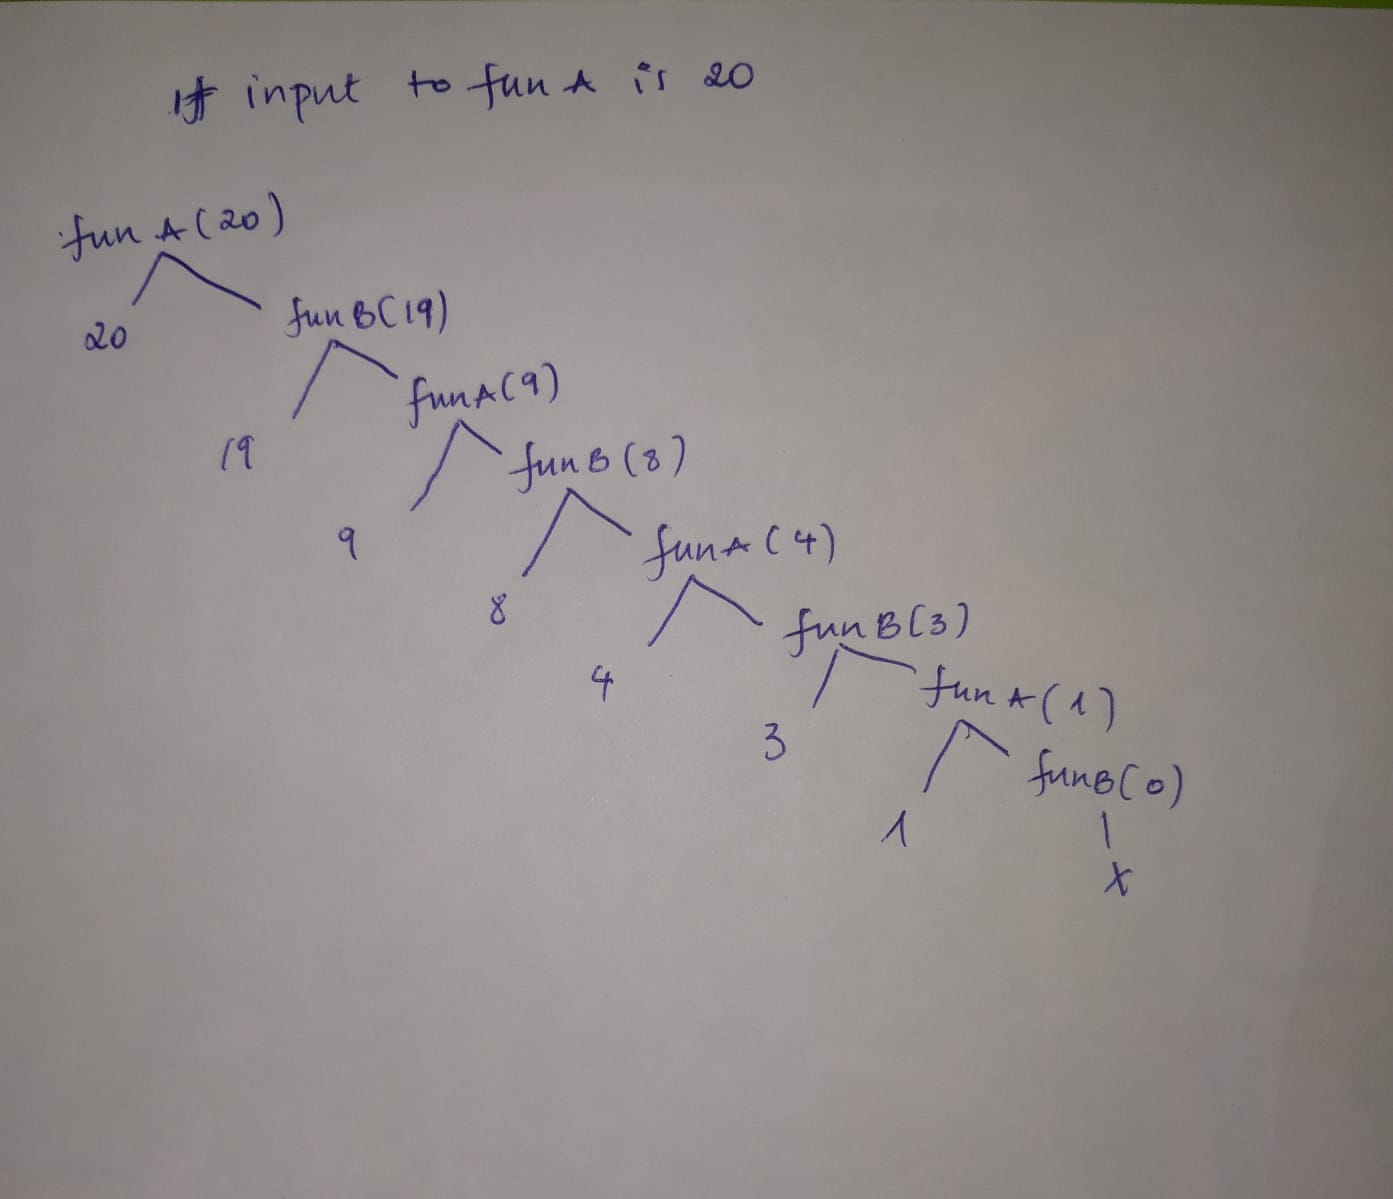 If input to fun A is 20
fun A (20)
20
fun B (19)
19
fun A (9)
9
fun B (8)
8
fun A (4)
4
fun B (3)
3
fun A (1)
1
fun B (0)
X